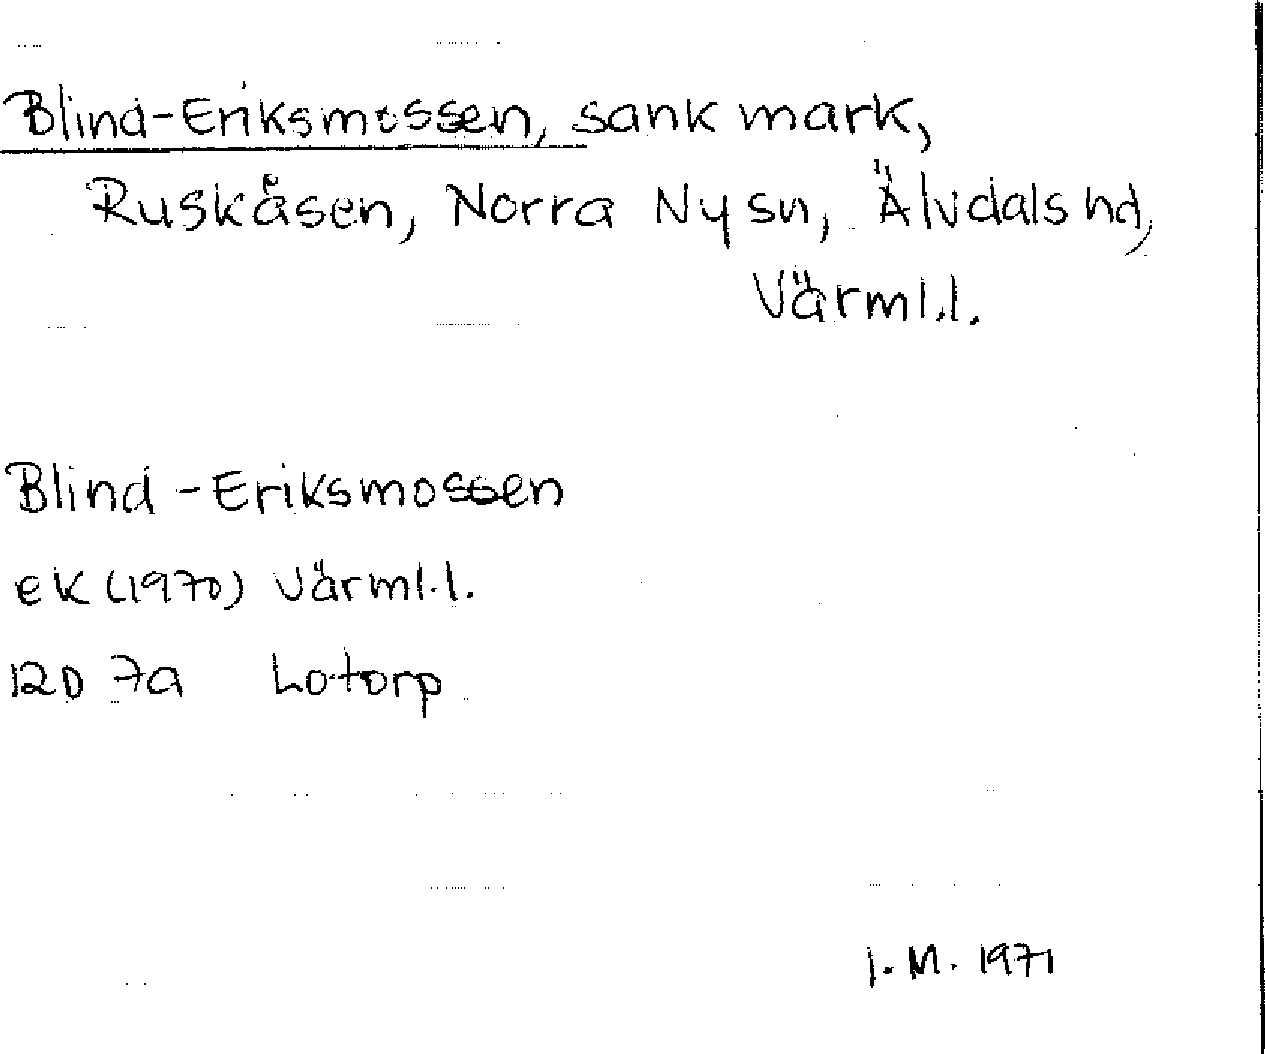 Blind-Eriksmossen, sank mark,
Ruskåsen, Norra Ny sn, Älvdals hd,
Värml.l.
Blind-Eriksmossen
ek (1970) Värml.l.
12D 7a Lotorp
I.M. 1971